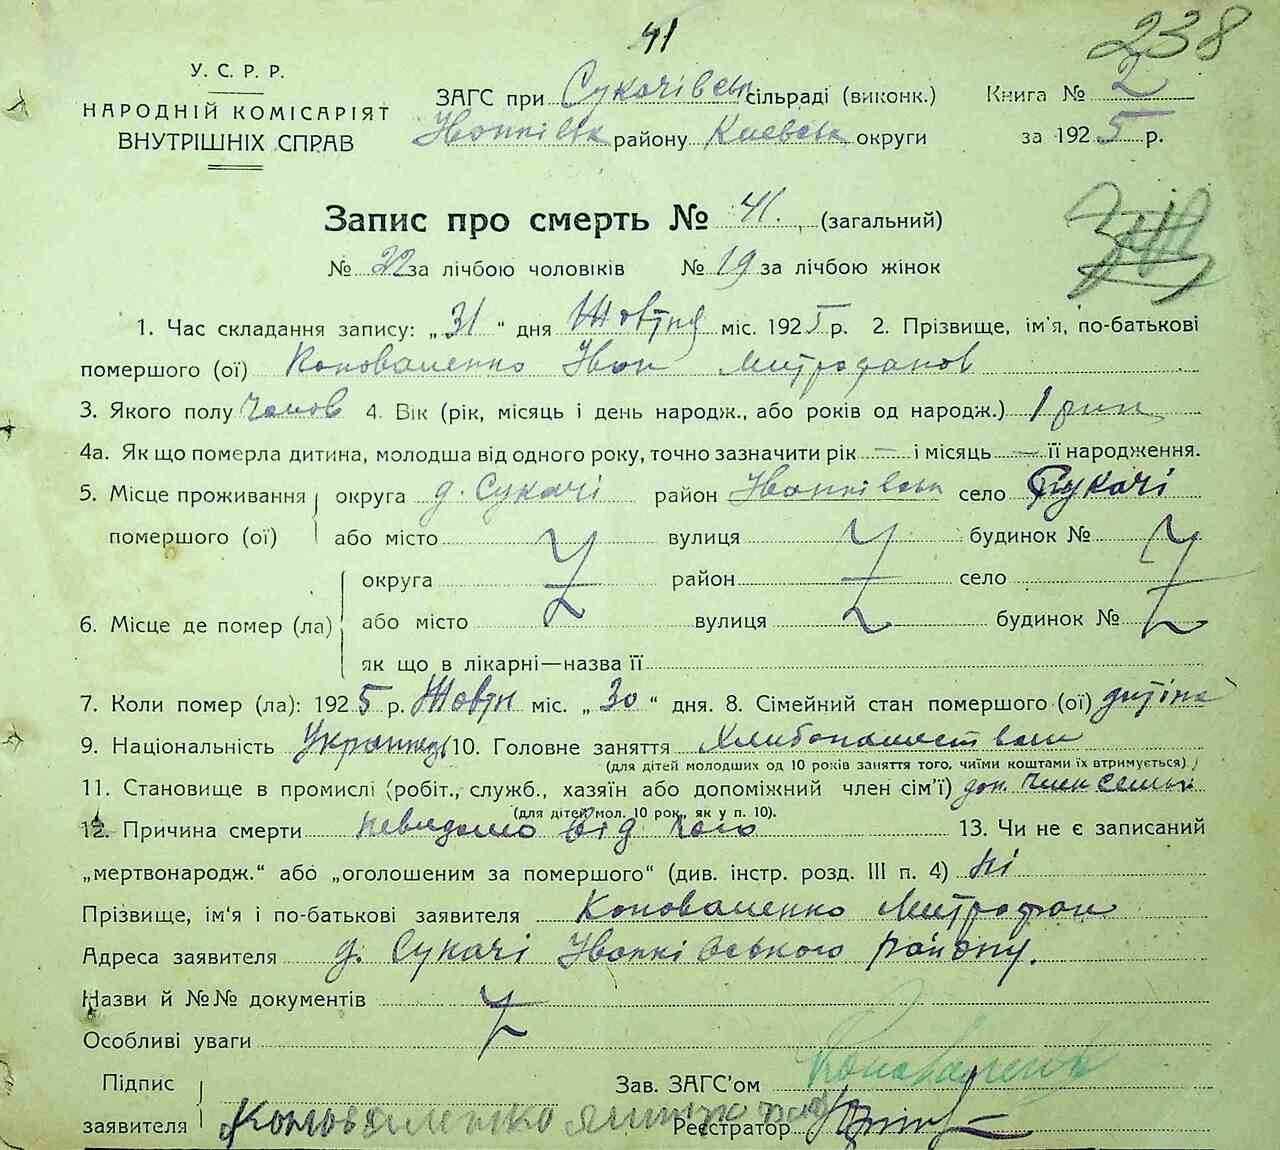 41
238
У. С. Р. Р.
НАРОДНІЙ КОМІСАРІЯТ
ВНУТРІШНІХ СПРАВ
ЗАГС при Сукачівськ сільраді (виконк.) Книга № 2
Іванківськ району Киевськ округи за 1925 р.
Запис про смерть № 41. (загальний)
№ 22 за лічбою чоловіків № 19 за лічбою жінок
1. Час складання запису: „31“ дня Жовтня міс. 1925 р. 2. Прізвище, ім'я, по-батькові
помершого (ої) Коноваленко Іван Митрофанов
3. Якого полу чолов 4. Вік (рік, місяць і день народж., або років од народж.) 1 рик
4а. Як що померла дитина, молодша від одного року, точно зазначити рік — і місяць — її народження.
5. Місце проживання округа д. Сукачі район Іванківськ село Сукачі
помершого (ої) або місто вулиця будинок №
округа район село
6. Місце де помер (ла) або місто вулиця будинок №
як що в лікарні—назва її
7. Коли помер (ла): 1925 р. Жовтн міс. „30“ дня. 8. Сімейний стан помершого (ої) дитіна
9. Національність Українець 10. Головне заняття Хлибопашеством
(для дітей молодших од 10 років заняття того, чиїми коштами їх втримується)
11. Становище в промислі (робіт., служб., хазяїн або допоміжний член сім'ї) доп. член семьи
(для дітей мол. 10 рок., як у п. 10).
12. Причина смерти невидомо від чого 13. Чи не є записаний
„мертвонародж.“ або „оголошеним за помершого“ (див. інстр. розд. III п. 4) ні
Прізвище, ім'я і по-батькові заявителя Коноваленко Митрофан
Адреса заявителя д. Сукачі Іванківського району.
Назви й №№ документів
Особливі уваги
Підпис Зав. ЗАГС'ом Коноваленко
заявителя Коноваленко Реєстратор